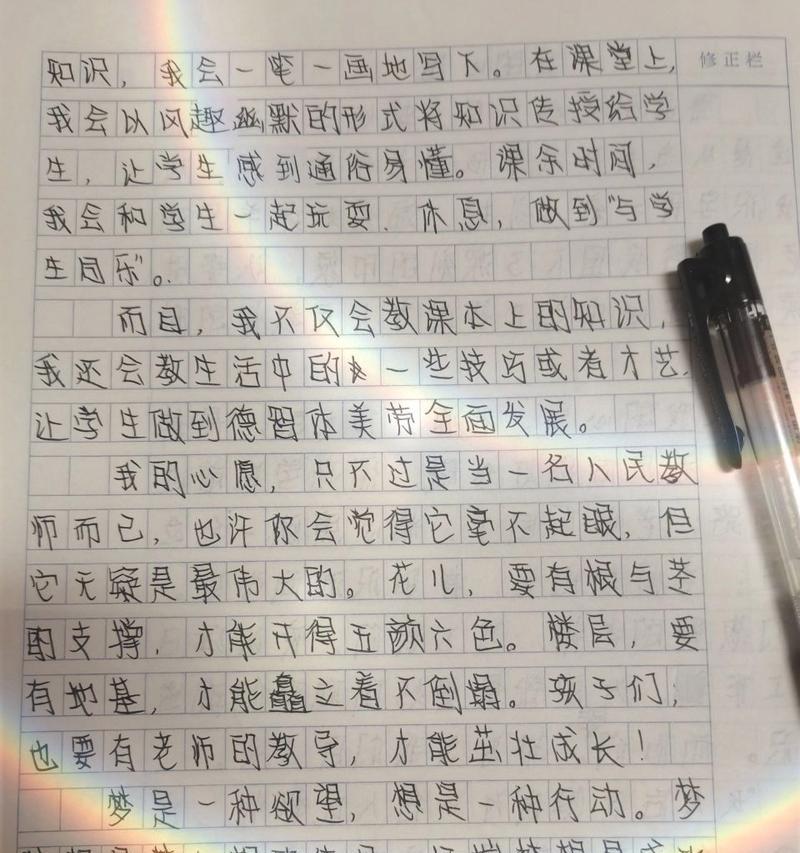 修正栏
知识，我会一笔一画地写下。在课堂上，
我会以风趣幽默的形式将知识传授给学
生，让学生感到通俗易懂。课余时间，
我会和学生一起玩耍、休息，做到“与学
生同乐”。
而且，我不仅会教课本上的知识，
我还会教生活中的一些技巧或者才艺，
让学生做到德智体美劳全面发展。
我的心愿，只不过是当一名人民教
师而已，也许你会觉得它毫不起眼，但
它无疑是最伟大的。花儿，要有根与茎
的支撑，才能开得五颜六色。楼层，要
有地基，才能矗立着不倒塌。孩子们，
也要有老师的教导，才能茁壮成长！
梦是一种欲望，想是一种行动。梦